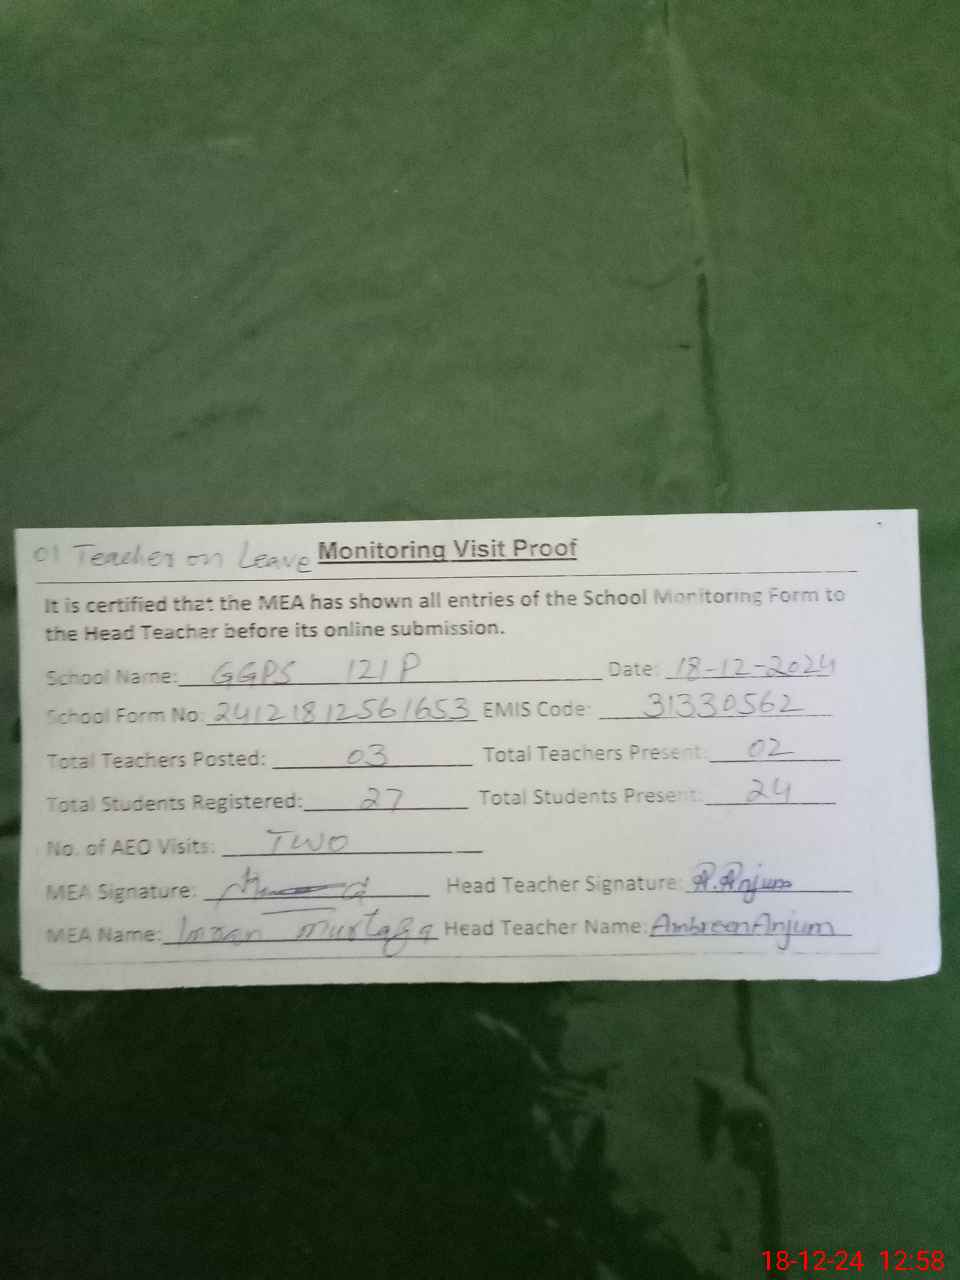 01 Teacher on Leave Monitoring Visit Proof
It is certified that the MEA has shown all entries of the School Monitoring Form to
the Head Teacher before its online submission.
School Name: GGPS 121 P Date: 18-12-2024
School Form No: 24121812561653 EMIS Code: 31330562
Total Teachers Posted: 03 Total Teachers Present: 02
Total Students Registered: 27 Total Students Present: 24
No. of AEO Visits: TWO
MEA Signature: Head Teacher Signature: A.Anjum
MEA Name: Imran Murtaza Head Teacher Name: Ambreen Anjum
18-12-24 12:58